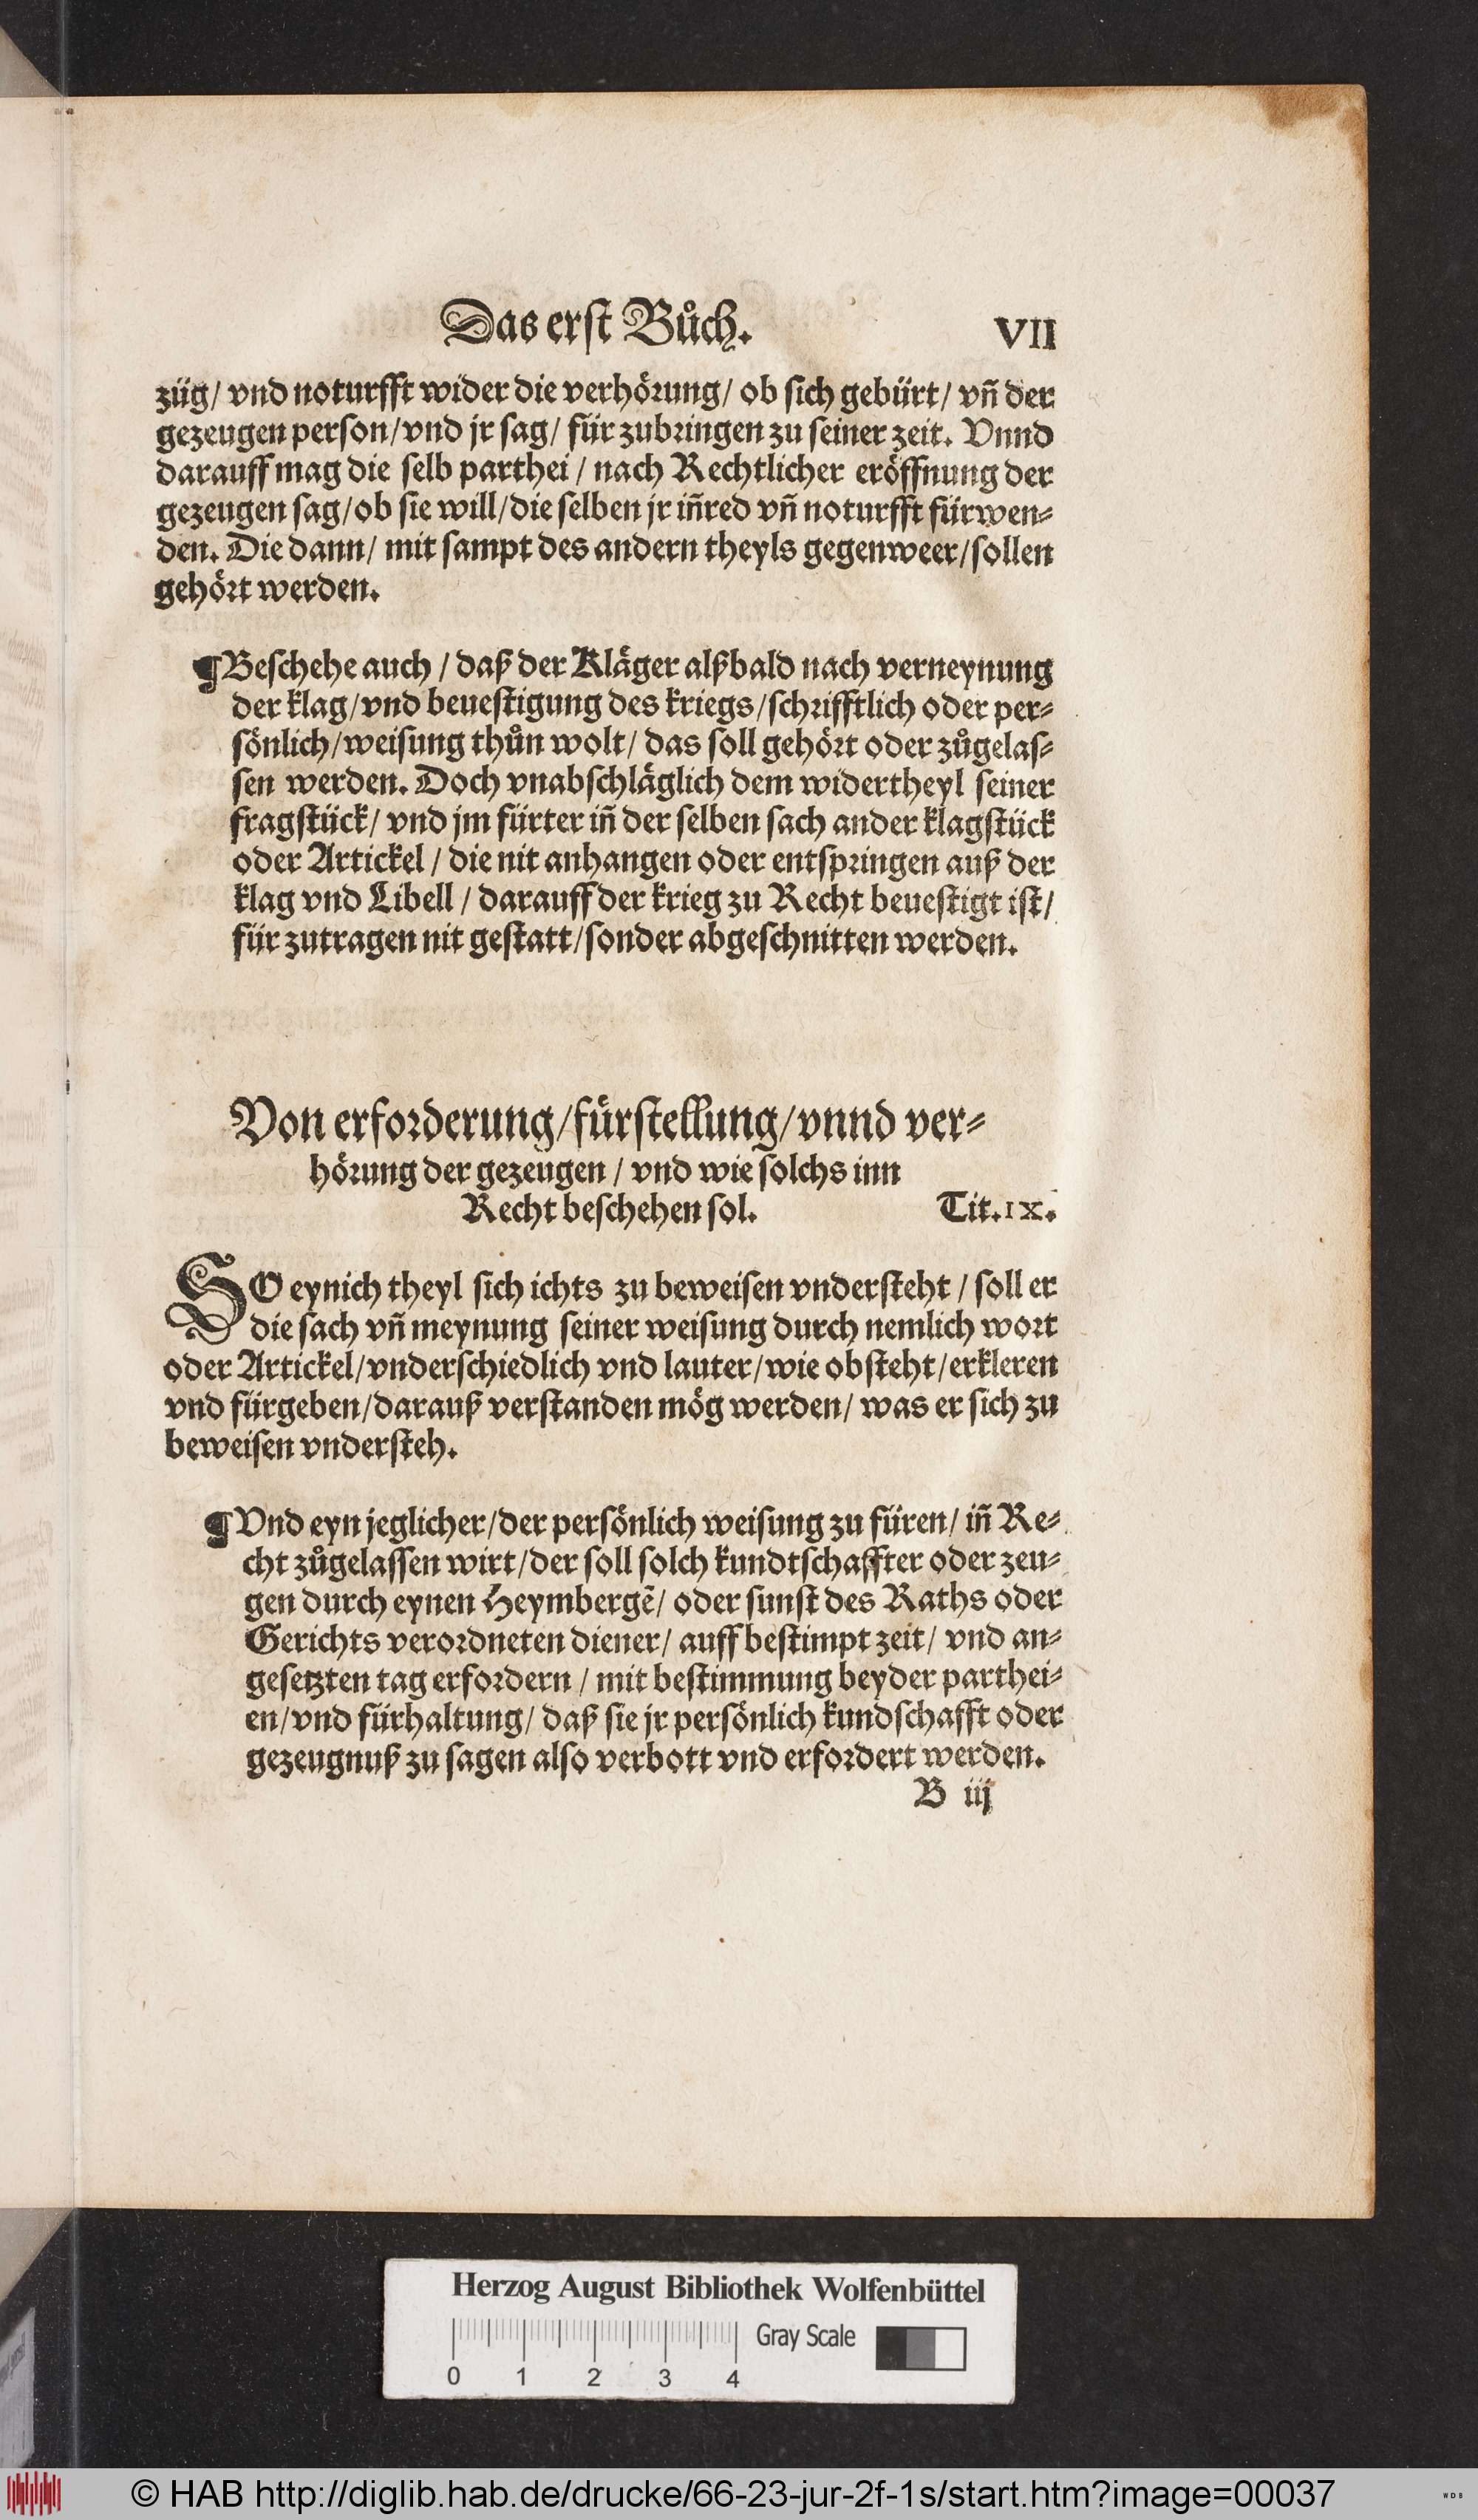 Das erst Bůch. VII
züg/ vnd noturfft wider die verhörung/ ob sich gebürt/ vñ der
gezeugen person/vnd jr sag/ für zubringen zu seiner zeit. Vnnd
darauff mag die selb parthei / nach Rechtlicher eröffnung der
gezeugen sag/ob sie will/die selben jr iñred vñ noturfft fürwen⸗
den. Die dann/ mit sampt des andern theyls gegenweer/sollen
gehört werden.
¶Beschehe auch / daß der Kläger alßbald nach verneynung
der klag/vnd beuestigung des kriegs/schrifftlich oder per⸗
sönlich/weisung thůn wolt/ das soll gehört oder zůgelas⸗
sen werden. Doch vnabschläglich dem widertheyl seiner
fragstück/ vnd jm fürter iñ der selben sach ander klagstück
oder Artickel / die nit anhangen oder entspringen auß der
klag vnd Libell / darauff der krieg zu Recht beuestigt ist/
für zutragen nit gestatt/sonder abgeschnitten werden.
Von erforderung/fürstellung/vnnd ver⸗
hörung der gezeugen / vnd wie solchs inn
Recht beschehen sol. Tit.IX.
SO eynich theyl sich ichts zu beweisen vndersteht / soll er
die sach vñ meynung seiner weisung durch nemlich wort
oder Artickel/vnderschiedlich vnd lauter/wie obsteht/erkleren
vnd fürgeben/darauß verstanden mög werden/ was er sich zu
beweisen vndersteh.
¶Vnd eyn jeglicher/der persönlich weisung zu füren/ iñ Re⸗
cht zůgelassen wirt/der soll solch kundtschaffter oder zeu⸗
gen durch eynen Heymbergē/ oder sunst des Raths oder
Gerichts verordneten diener/ auff bestimpt zeit/ vnd an⸗
gesetzten tag erfordern / mit bestimmung beyder parthei⸗
en/vnd fürhaltung/ daß sie jr persönlich kundschafft oder
gezeugnuß zu sagen also verbott vnd erfordert werden.
B iij
Herzog August Bibliothek Wolfenbüttel
Gray Scale
0 1 2 3 4
© HAB http://diglib.hab.de/drucke/66-23-jur-2f-1s/start.htm?image=00037
WDB